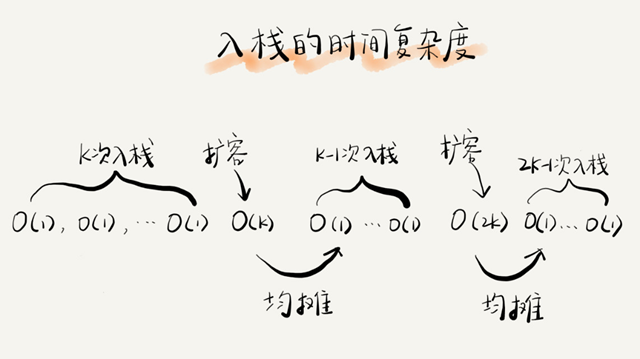 入栈的时间复杂度
K次入栈 扩容 K-1次入栈 扩容 2K-1次入栈
O(1), O(1), … O(1) O(K) O(1) … O(1) O(2K) O(1) … O(1)
均摊 均摊